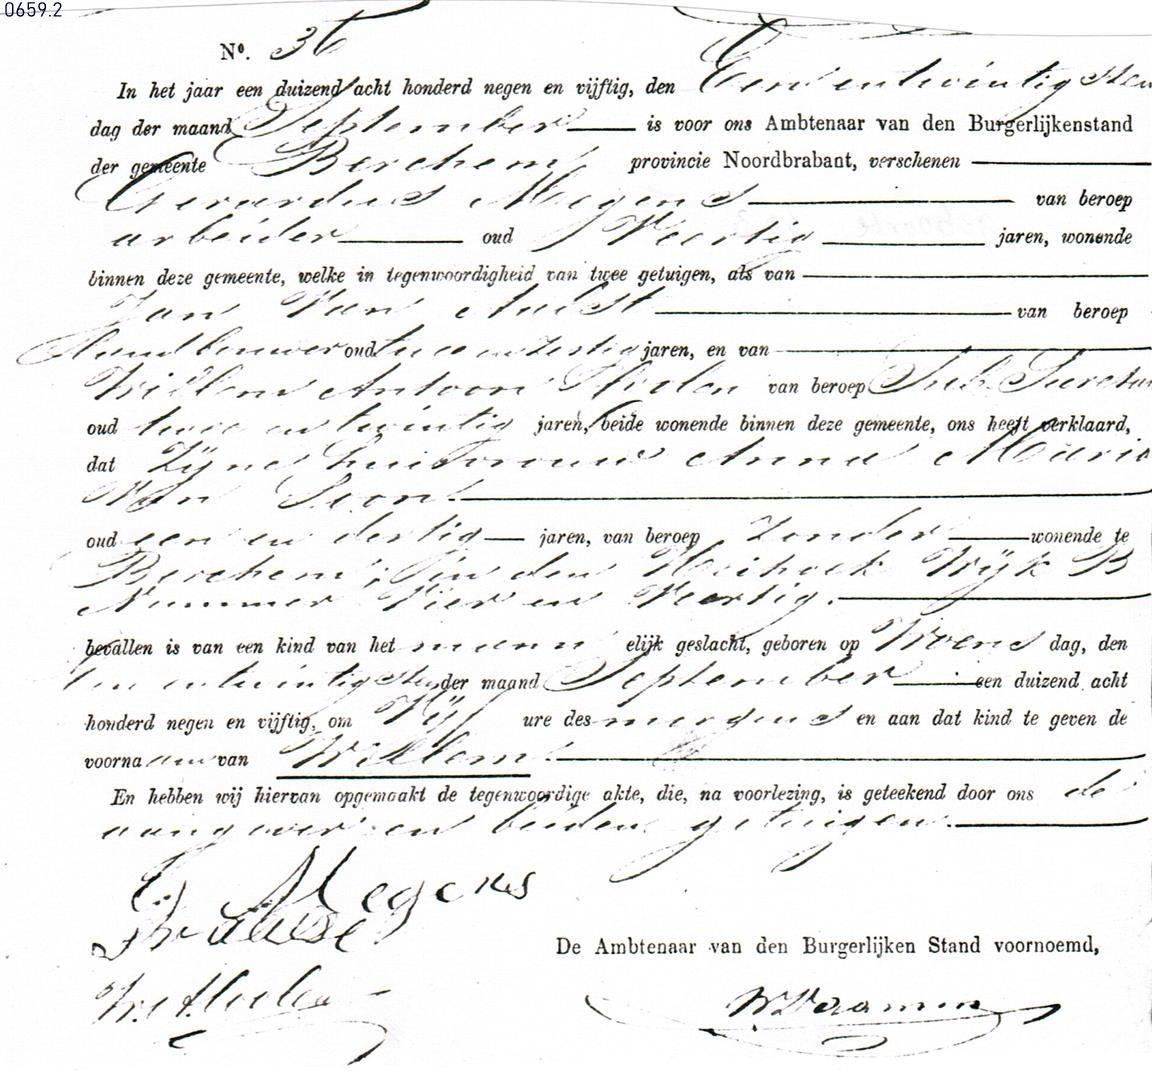 0659.2
No. 36
In het jaar een duizend acht honderd negen en vijftig, den Een en twintigsten
dag der maand September is voor ons Ambtenaar van den Burgerlijkenstand
der gemeente Berchem provincie Noordbrabant, verschenen
Gerardus Megens van beroep
arbeider oud Veertig jaren, wonende
binnen deze gemeente, welke in tegenwoordigheid van twee getuigen, als van
Jan Van Aulst van beroep
Landbouwer oud twee en zestig jaren, en van
Willem Antoon van beroep
oud twee en twintig jaren, beide wonende binnen deze gemeente, ons heeft verklaard,
dat Zijne huisvrouw Anna Maria
Van Loon
oud een en dertig jaren, van beroep Zonder wonende te
Berchem, in den Heihoek Wijk B
Nummer Vier en Veertig.
bevallen is van een kind van het mann elijk geslacht, geboren op Woens dag, den
Een en twintigsten der maand September een duizend acht
honderd negen en vijftig, om Vijf ure des morgens en aan dat kind te geven de
voornaam van Willem
En hebben wij hiervan opgemaakt de tegenwoordige akte, die, na voorlezing, is geteekend door ons de
aangever en beiden getuigen.
G. Megens
De Ambtenaar van den Burgerlijken Stand voornoemd,